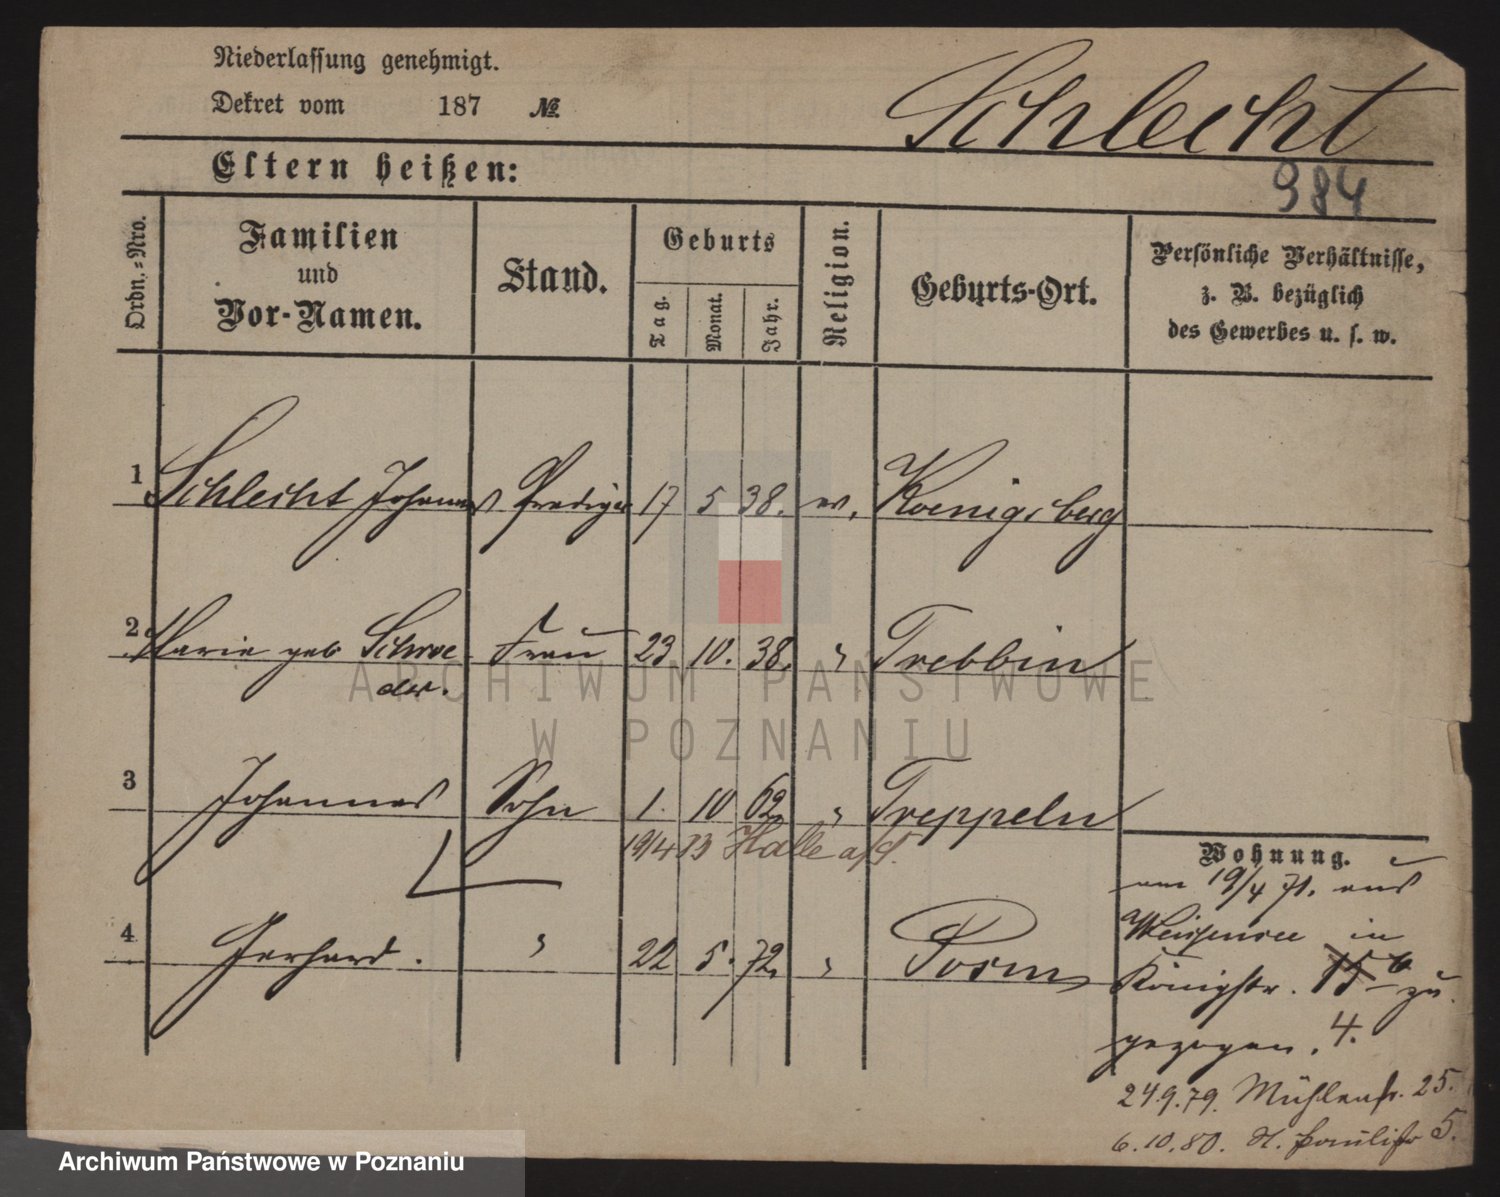 Niederlassung genehmigt.
Dekret vom 187 №
Schlecht
984
Eltern heißen:
Ordn.-Nro.
Familien
und
Vor-Namen.
Stand.
Geburts
Tag.
Monat.
Jahr.
Religion.
Geburts-Ort.
Persönliche Verhältnisse,
z. B. bezüglich
des Gewerbes u. s. w.
1 Schlecht Johannes Prediger 17 5 38. ev. Koenigsberg
2 Marie geb Schroe Frau 23 10. 38. " Trebbin
der.
3 Johannes Sohn 1. 10 62. " Treppeln
19/4 83 Halle a/S.
4 Gerhard. " 22 5. 72. " Posen
Wohnung.
am 19/4 71. aus
Weißensee in
Königstr. 15 6 zu
gezogen. 4.
24.9.79. Mühlenstr. 25.
6.10.80. St. Paulistr 5.
ARCHIWUM PAŃSTWOWE
W POZNANIU
Archiwum Państwowe w Poznaniu